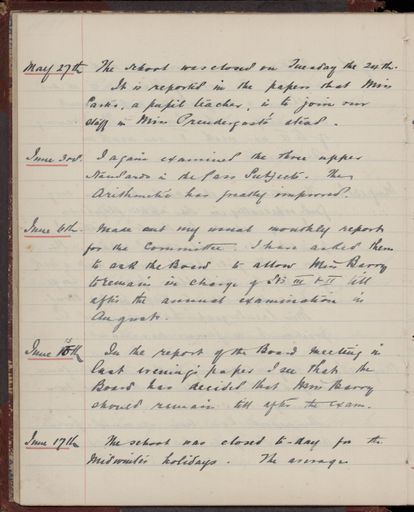 May 27th The school was closed on Tuesday the 24th.
It is reported in the papers that Miss
Parks, a pupil teacher, is to join our
staff in Miss Prendergast's stead.
June 3rd. I again examined the three upper
Standards in the Pass Subjects. The
Arithmetic has greatly improved.
June 6th. Made out my usual monthly report
for the Committee. I have asked them
to ask the Board to allow Miss Barry
to remain in charge of Sts III & II till
after the annual examination in
August.
June 10th In the report of the Board meeting in
last evening's paper I see that the
Board has decided that Miss Barry
should remain till after the exam.
June 17th The school was closed to-day for the
Midwinter holidays. The average